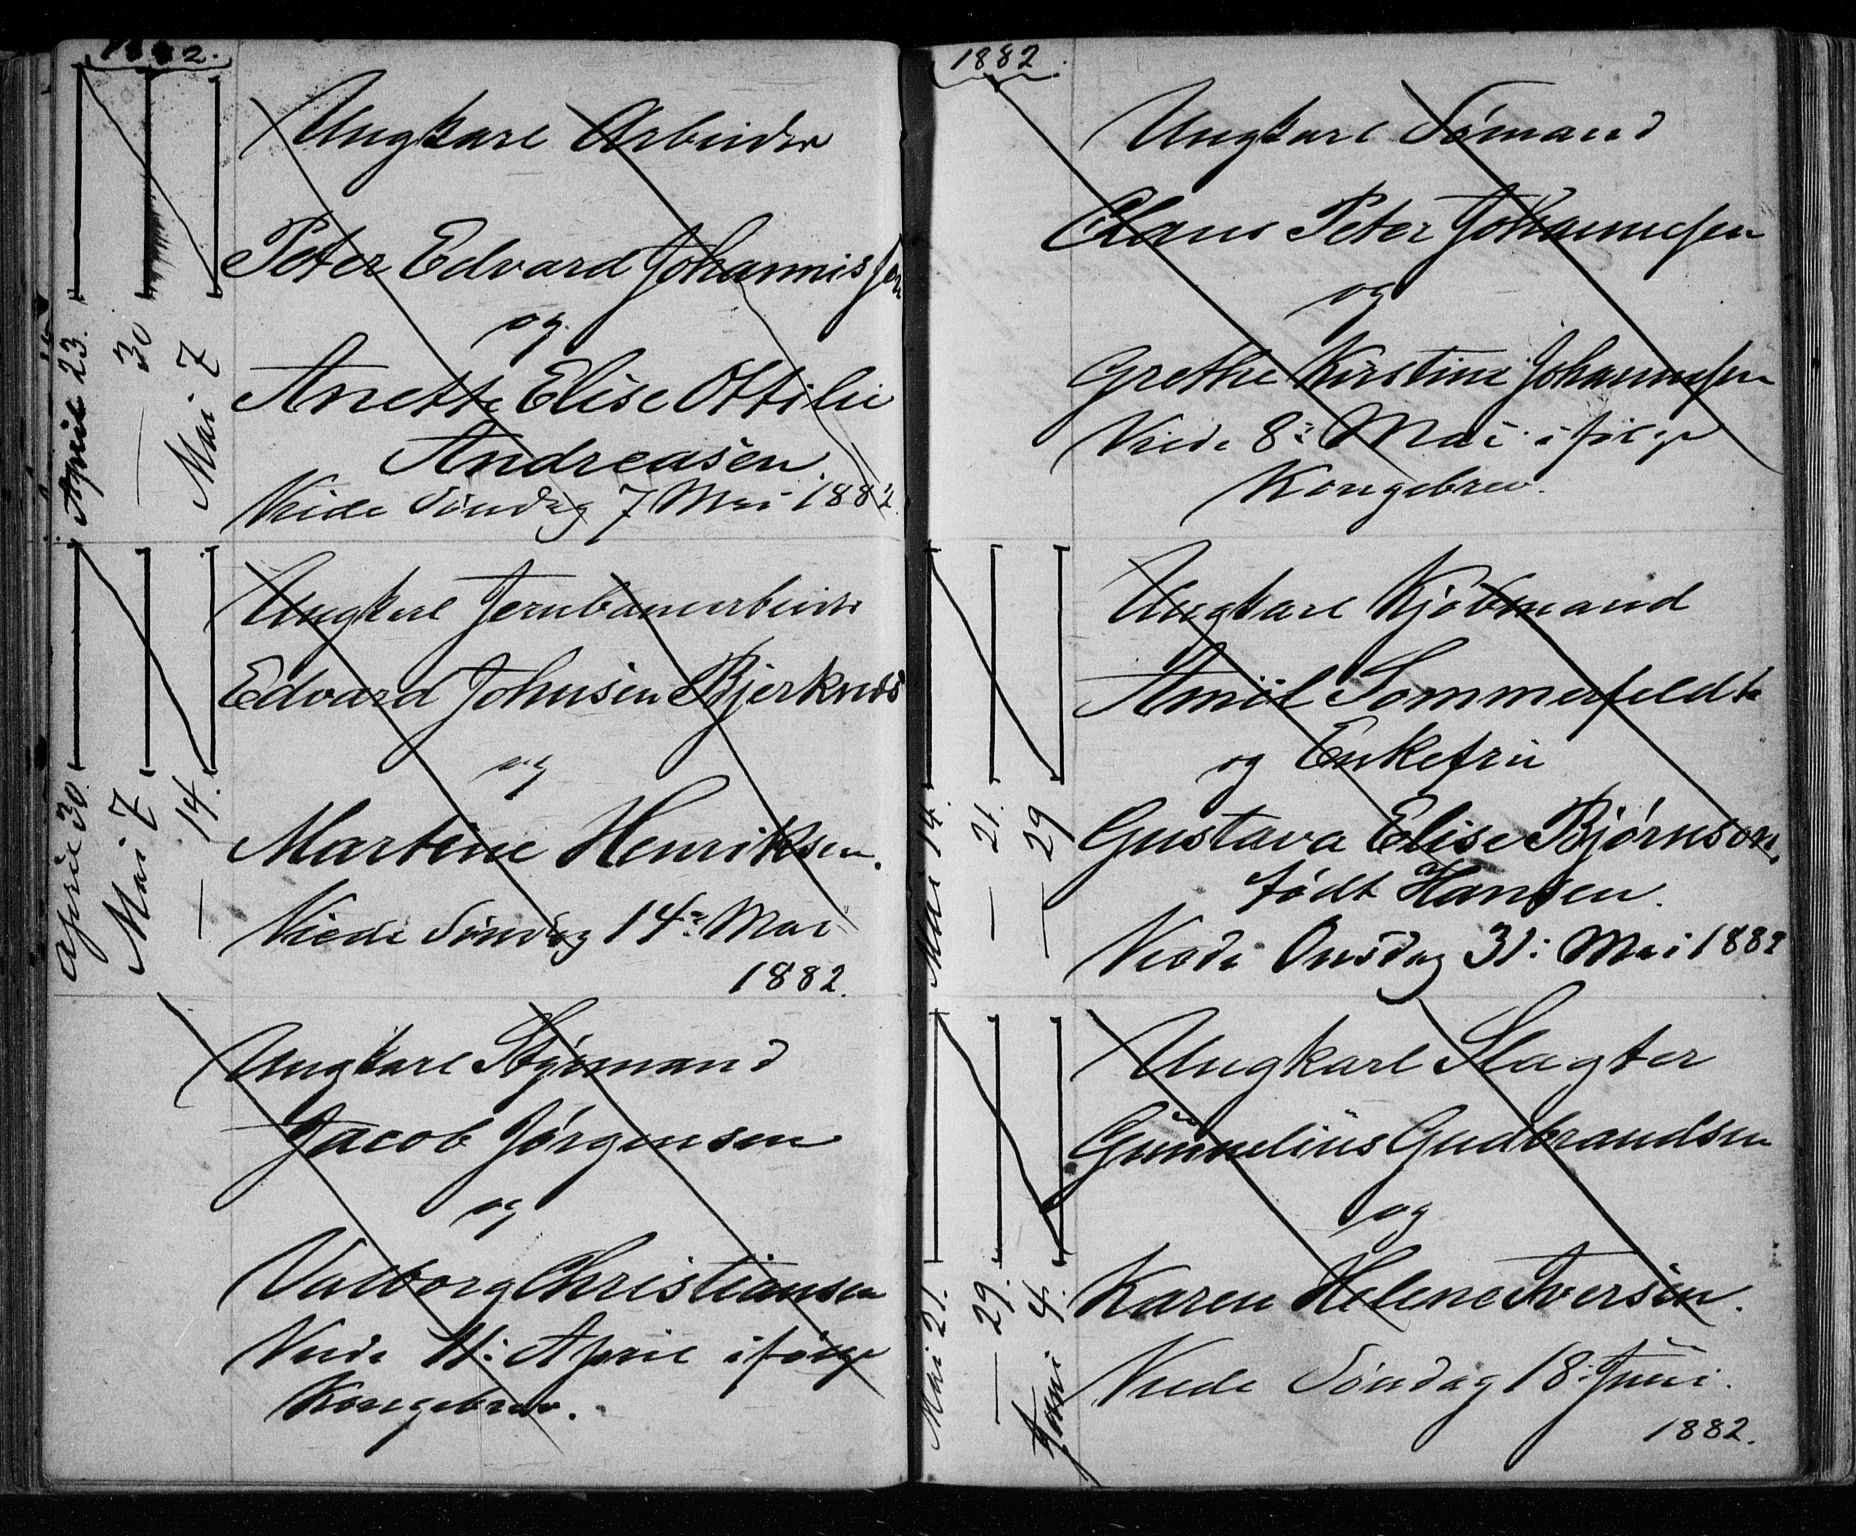 1882.
April 23.
— 30
Mai 7
Ungkarl Arbeider
Peter Edvard Johannissen
og
Anette Elise Ottilie
Andreasen.
Viede Søndag 7 Mai 1882.
April 30.
Mai 7
— 14.
Ungkarl Jernbanearbeider
Edvard Johnsen Bjerknæs
og
Martine Henriksen.
Viede Søndag 14: Mai
1882.
Ungkarl Styrmand
Jacob Jørgensen
og
Valborg Christiansen
Viede 11: April ifølge
Kongebrev.
1882.
Ungkarl Sømand
Claus Peter Johannesen
og
Grethe Kirstine Johannesen
Viede 8: Mai ifølge
Kongebrev.
Mai 14.
— 21.
— 29
Ungkarl Kjøbmand
Sommerfeldt
og Enkefru
Gustava Elise Bjørnson,
født Hansen.
Viede Onsdag 31: Mai 1882
Mai 21.
— 29.
Juni 4.
Ungkarl Slagter
Gunnelius Gudbrandsen
og
Karen Helene Iversen.
Viede Søndag 18: Juni.
1882.